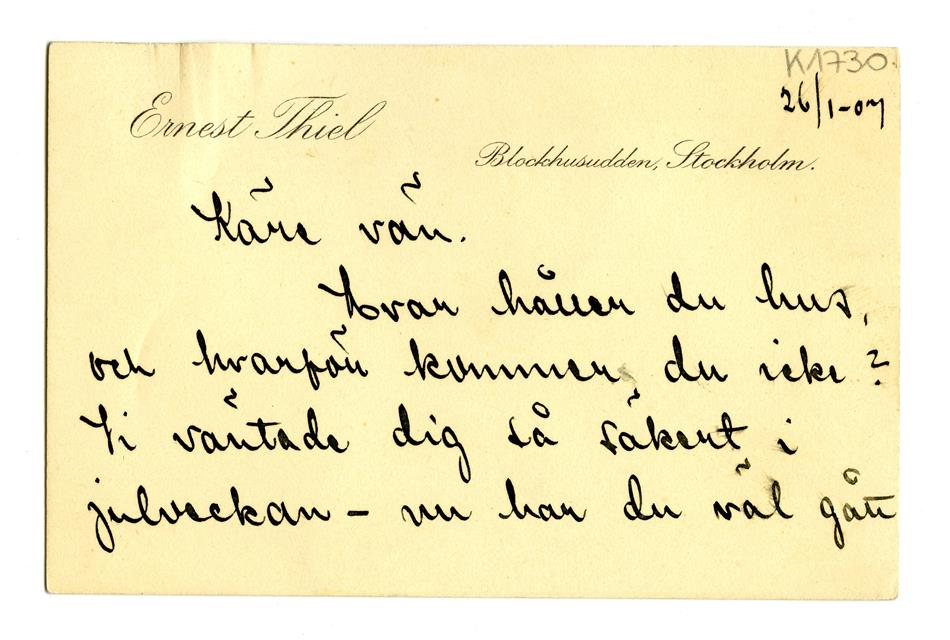 K1730
26/1-07
Ernest Thiel
Blockhusudden, Stockholm.
Käre vän.
Hvar håller du hus,
och hvarför kommer du icke?
Vi väntade dig så säkert i
julveckan – nu har du väl gått